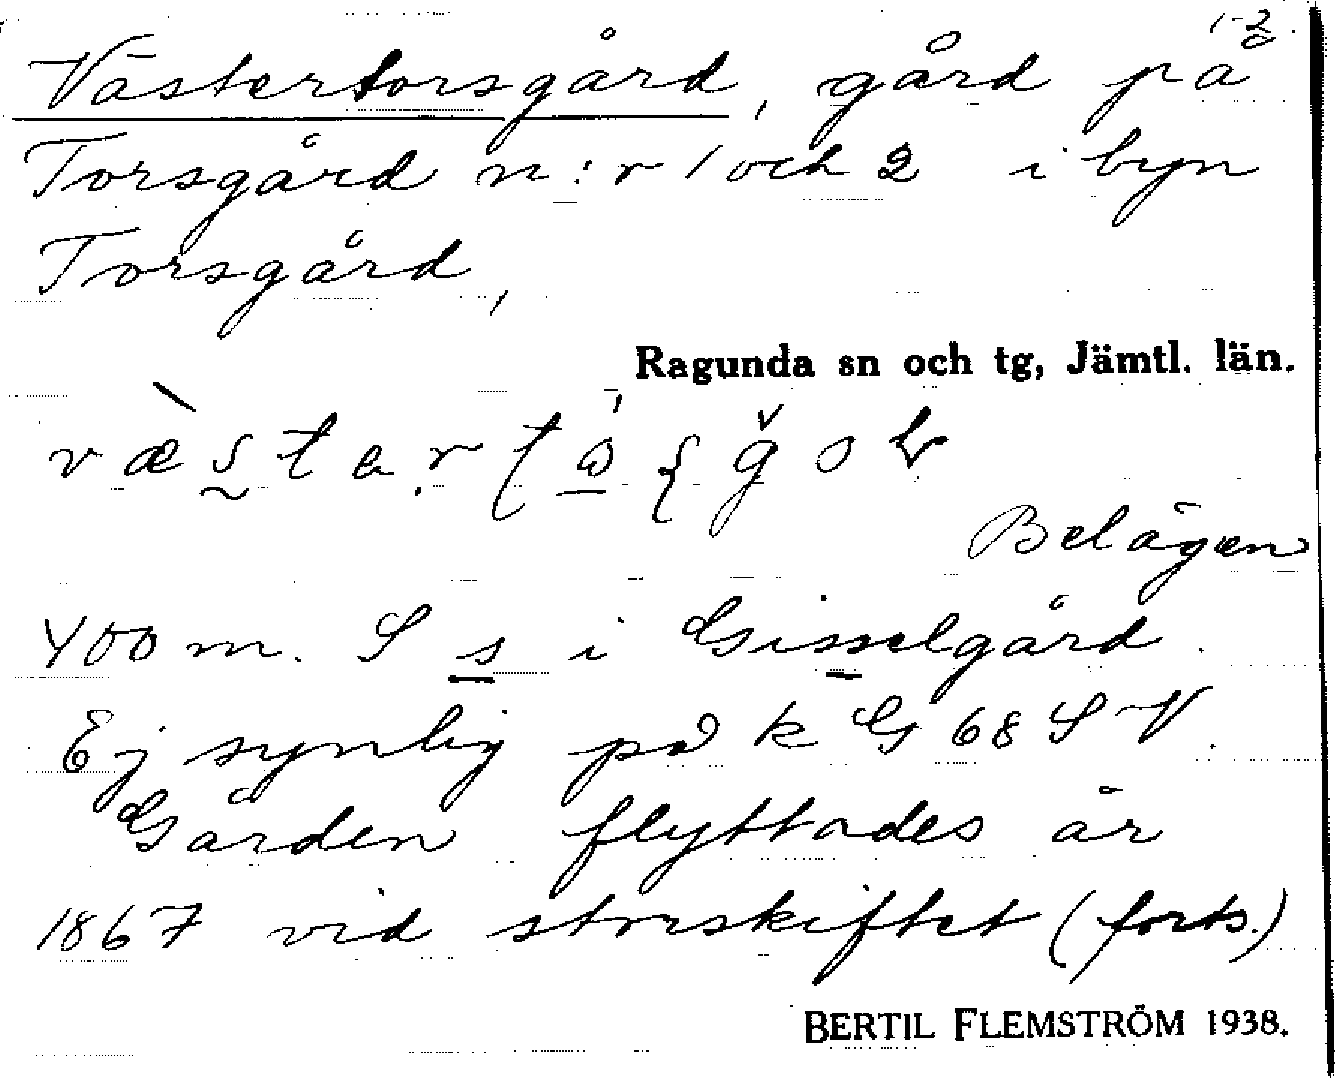 1-2.
Västertorsgård, gård på
Torsgård n:r 1 och 2 i byn
Torsgård,
Ragunda sn och tg, Jämtl. län.
Belägen
400 m. S s i Gisselgård.
Ej synlig på k G 68 S V.
Gården flyttades år
1867 vid storskiftet (forts.)
BERTIL FLEMSTRÖM 1938.